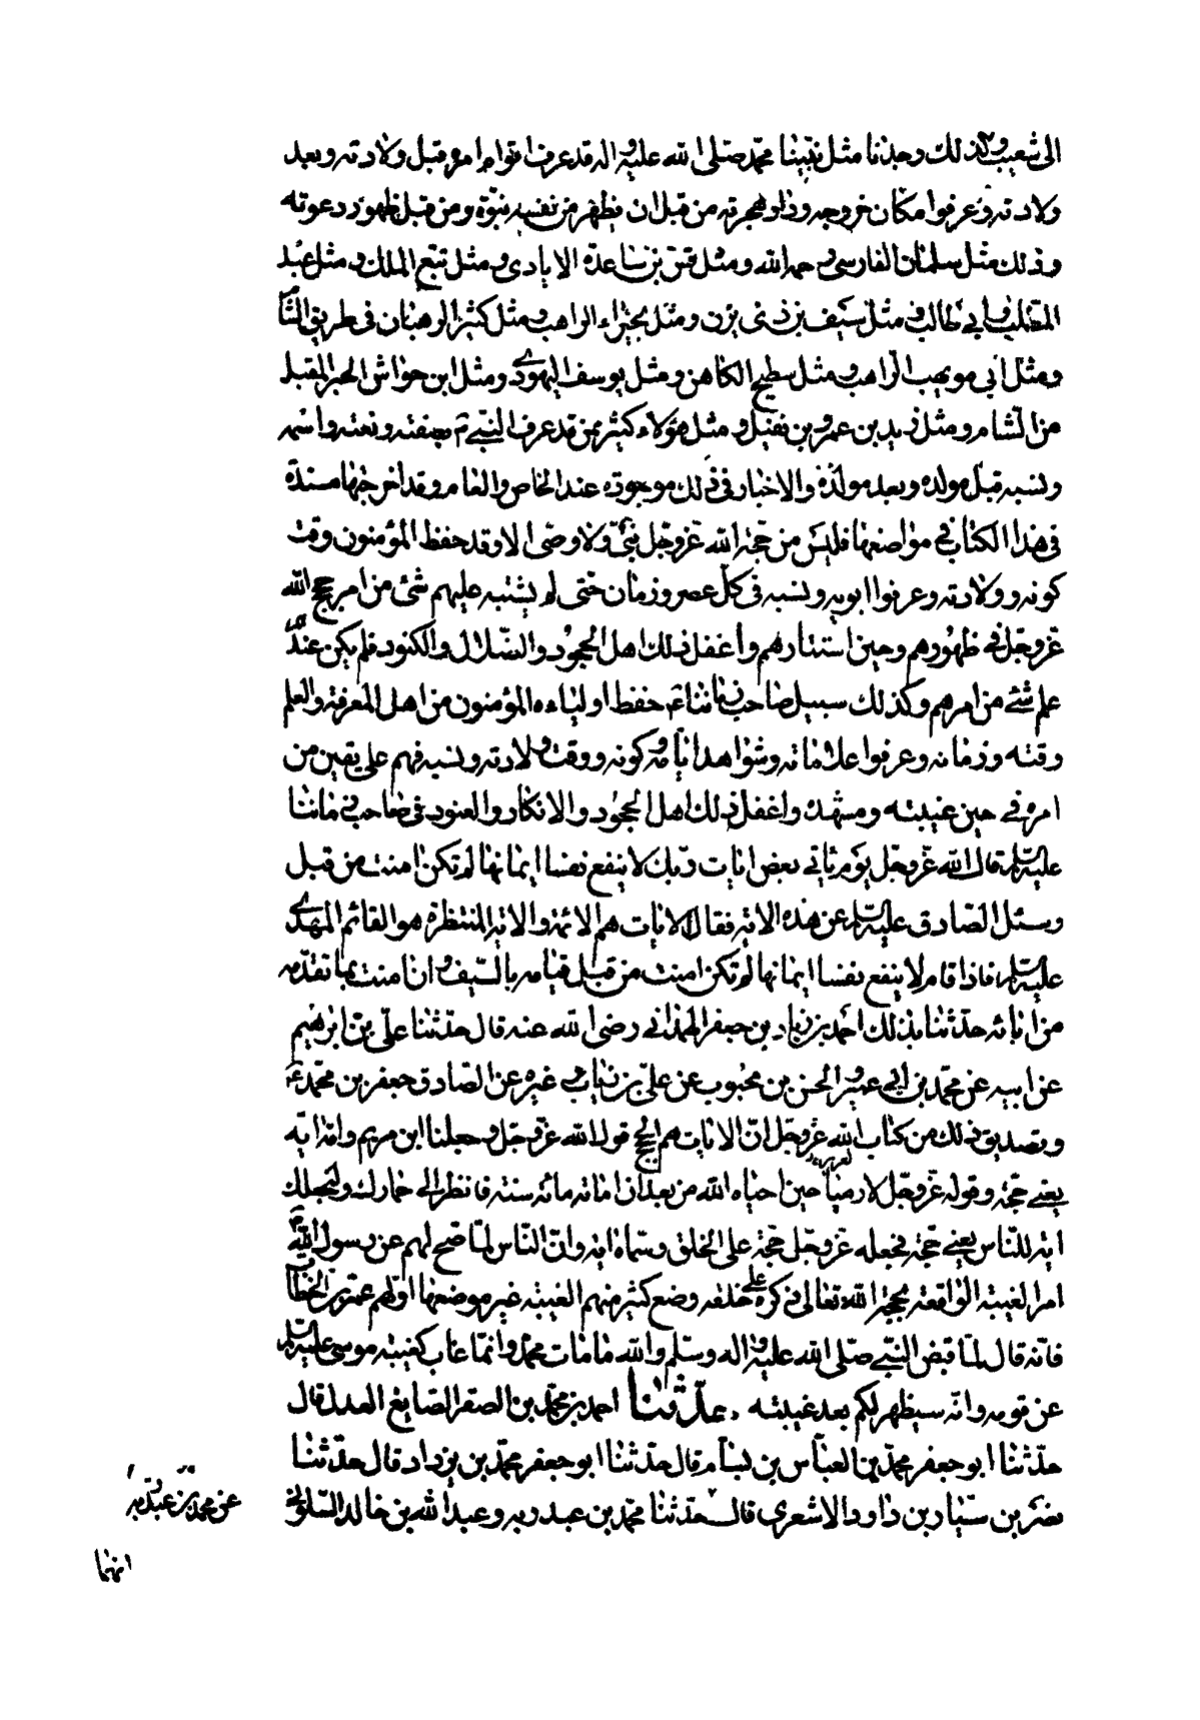 الى شعيب وكذلك وجدنا مثل نبينا محمد صلى الله عليه واله قد عرف اقوام امره قبل ولادته وبعد
ولادته وعرفوا مكان خروجه ودار هجرته من قبل ان يظهر من نفسه نبوة ومن قبل ظهور دعوته
وذلك مثل سلمان الفارسي رحمه الله ومثل قس بن ساعدة الايادي ومثل تبع الملك ومثل عبد
المطلب وابي طالب ومثل سيف بن ذي يزن ومثل بحيراء الراهب ومثل كثير الرهبان في طريق الشام
ومثل ابي مويهب الراهب ومثل سطيح الكاهن ومثل يوسف اليهودي ومثل ابن حواش الحبر المقبل
من الشام ومثل زيد بن عمرو بن نفيل ومثل هؤلاء كثير ممن قد عرف النبي ص بصفته ونعته واسمه
ونسبه قبل مولده وبعد مولده والاخبار في ذلك موجودة عند الخاص والعام وقد اخرجتها مسندة
في هذا الكتاب في مواضعها فليس من حجة الله عز وجل نبي ولا وصي الا وقد حفظ المؤمنون وقت
كونه وولادته وعرفوا ابويه ونسبه في كل عصر وزمان حتى لم يشتبه عليهم شئ من امر حجج الله
عز وجل في ظهورهم وحين استتارهم واغفل ذلك اهل الجحود والضلال والكنود فلم يكن عندهم
علم شئ من امرهم وكذلك سبيل صاحب زماننا ع حفظ اولياءه المؤمنون من اهل المعرفة والعلم
وقته وزمانه وعرفوا علاماته وشواهد ايامه وكونه ووقت ولادته ونسبه فهم على يقين من
امره في حين غيبته ومشهده واغفل ذلك اهل الجحود والانكار والعنود وفي صاحب زماننا
عليه السلم قال الله عز وجل يوم ياتي بعض ايات ربك لا ينفع نفسا ايمانها لم تكن امنت من قبل
وسئل الصادق عليه السلم عن هذه الاية فقال الايات هم الائمة والاية المنتظرة هو القائم المهدي
عليه السلم فاذا قام لا ينفع نفسا ايمانها لم تكن امنت من قبل قيامه بالسيف وان امنت بما تقدمه
من ابائه حدثنا بذلك احمد بن زياد بن جعفر الهمداني رضى الله عنه قال حدثنا علي بن ابرهيم
عن ابيه عن محمد بن ابي عمير والحسن بن محبوب عن علي بن رئاب وغيره عن الصادق جعفر بن محمد ع
وتصديق ذلك من كتاب الله عز وجل ان الايات هم الحجج قول الله عز وجل وجعلنا ابن مريم وامه اية
يعني حجة وقوله عز وجل لارميا حين احياه الله من بعد ان اماته مائة سنة فانظر الى حمارك ولنجعلك
اية للناس يعني حجة فجعله عز وجل حجة على الخلق وسماه اية وان الناس لما صح لهم عن رسول الله ص
امر الغيبة الواقعة بحجة الله تعالى ذكره على خلقه وضع كثير منهم الغيبة غير موضعها اولهم عمر بن الخطاب
فانه قال لما قبض النبي صلى الله عليه واله وسلم والله ما مات محمد وانما غاب كغيبة موسى عليه السلم
عن قومه وانه سيظهر لكم بعد غيبته . حدثنا احمد بن محمد بن الصقر الصايغ العدل قال
حدثنا ابو جعفر محمد بن العباس بن بسام قال حدثنا ابو جعفر محمد بن يزداد قال حدثنا
نصر بن سيار بن داود الاشعري قال حدثنا محمد بن عبد ربه وعبد الله بن خالد السلولي
عن محمد بن عبد ربه
انهما